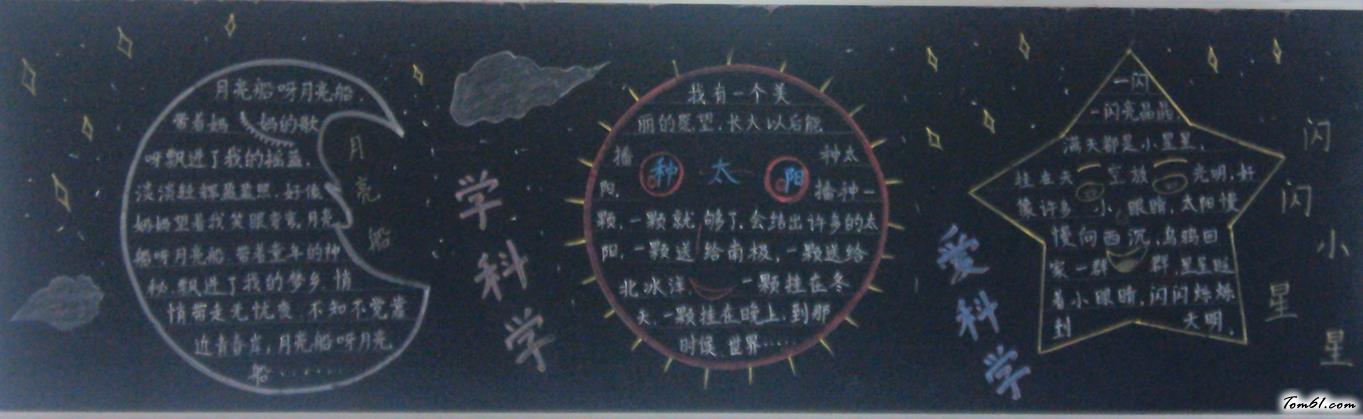 月亮船呀月亮船,
带着妈妈的歌
呀飘进了我的摇篮,
淡淡轻辉盈盈照,好像
妈妈望着我笑眼弯弯,月亮
船呀月亮船,带着童年的神
秘,飘进了我的梦乡,悄
悄带走无忧虑,不知不觉靠
近青春岸,月亮船呀月亮
船……
月亮船
学科学
我有一个美
丽的愿望,长大以后能
播 种 太 阳 种太
阳, 播种一
颗,一颗就够了,会结出许多的太
阳,一颗送给南极,一颗送给
北冰洋, 一颗挂在冬
天,一颗挂在晚上,到那
时候,世界……
爱科学
一闪
一闪亮晶晶,
满天都是小星星,
挂在天空放光明,好
像许多小眼睛,太阳慢
慢向西沉,乌鸦回
家一群群,星星眨
着小眼睛,闪闪烁烁
到天明,
闪闪小星星
Tom61.com